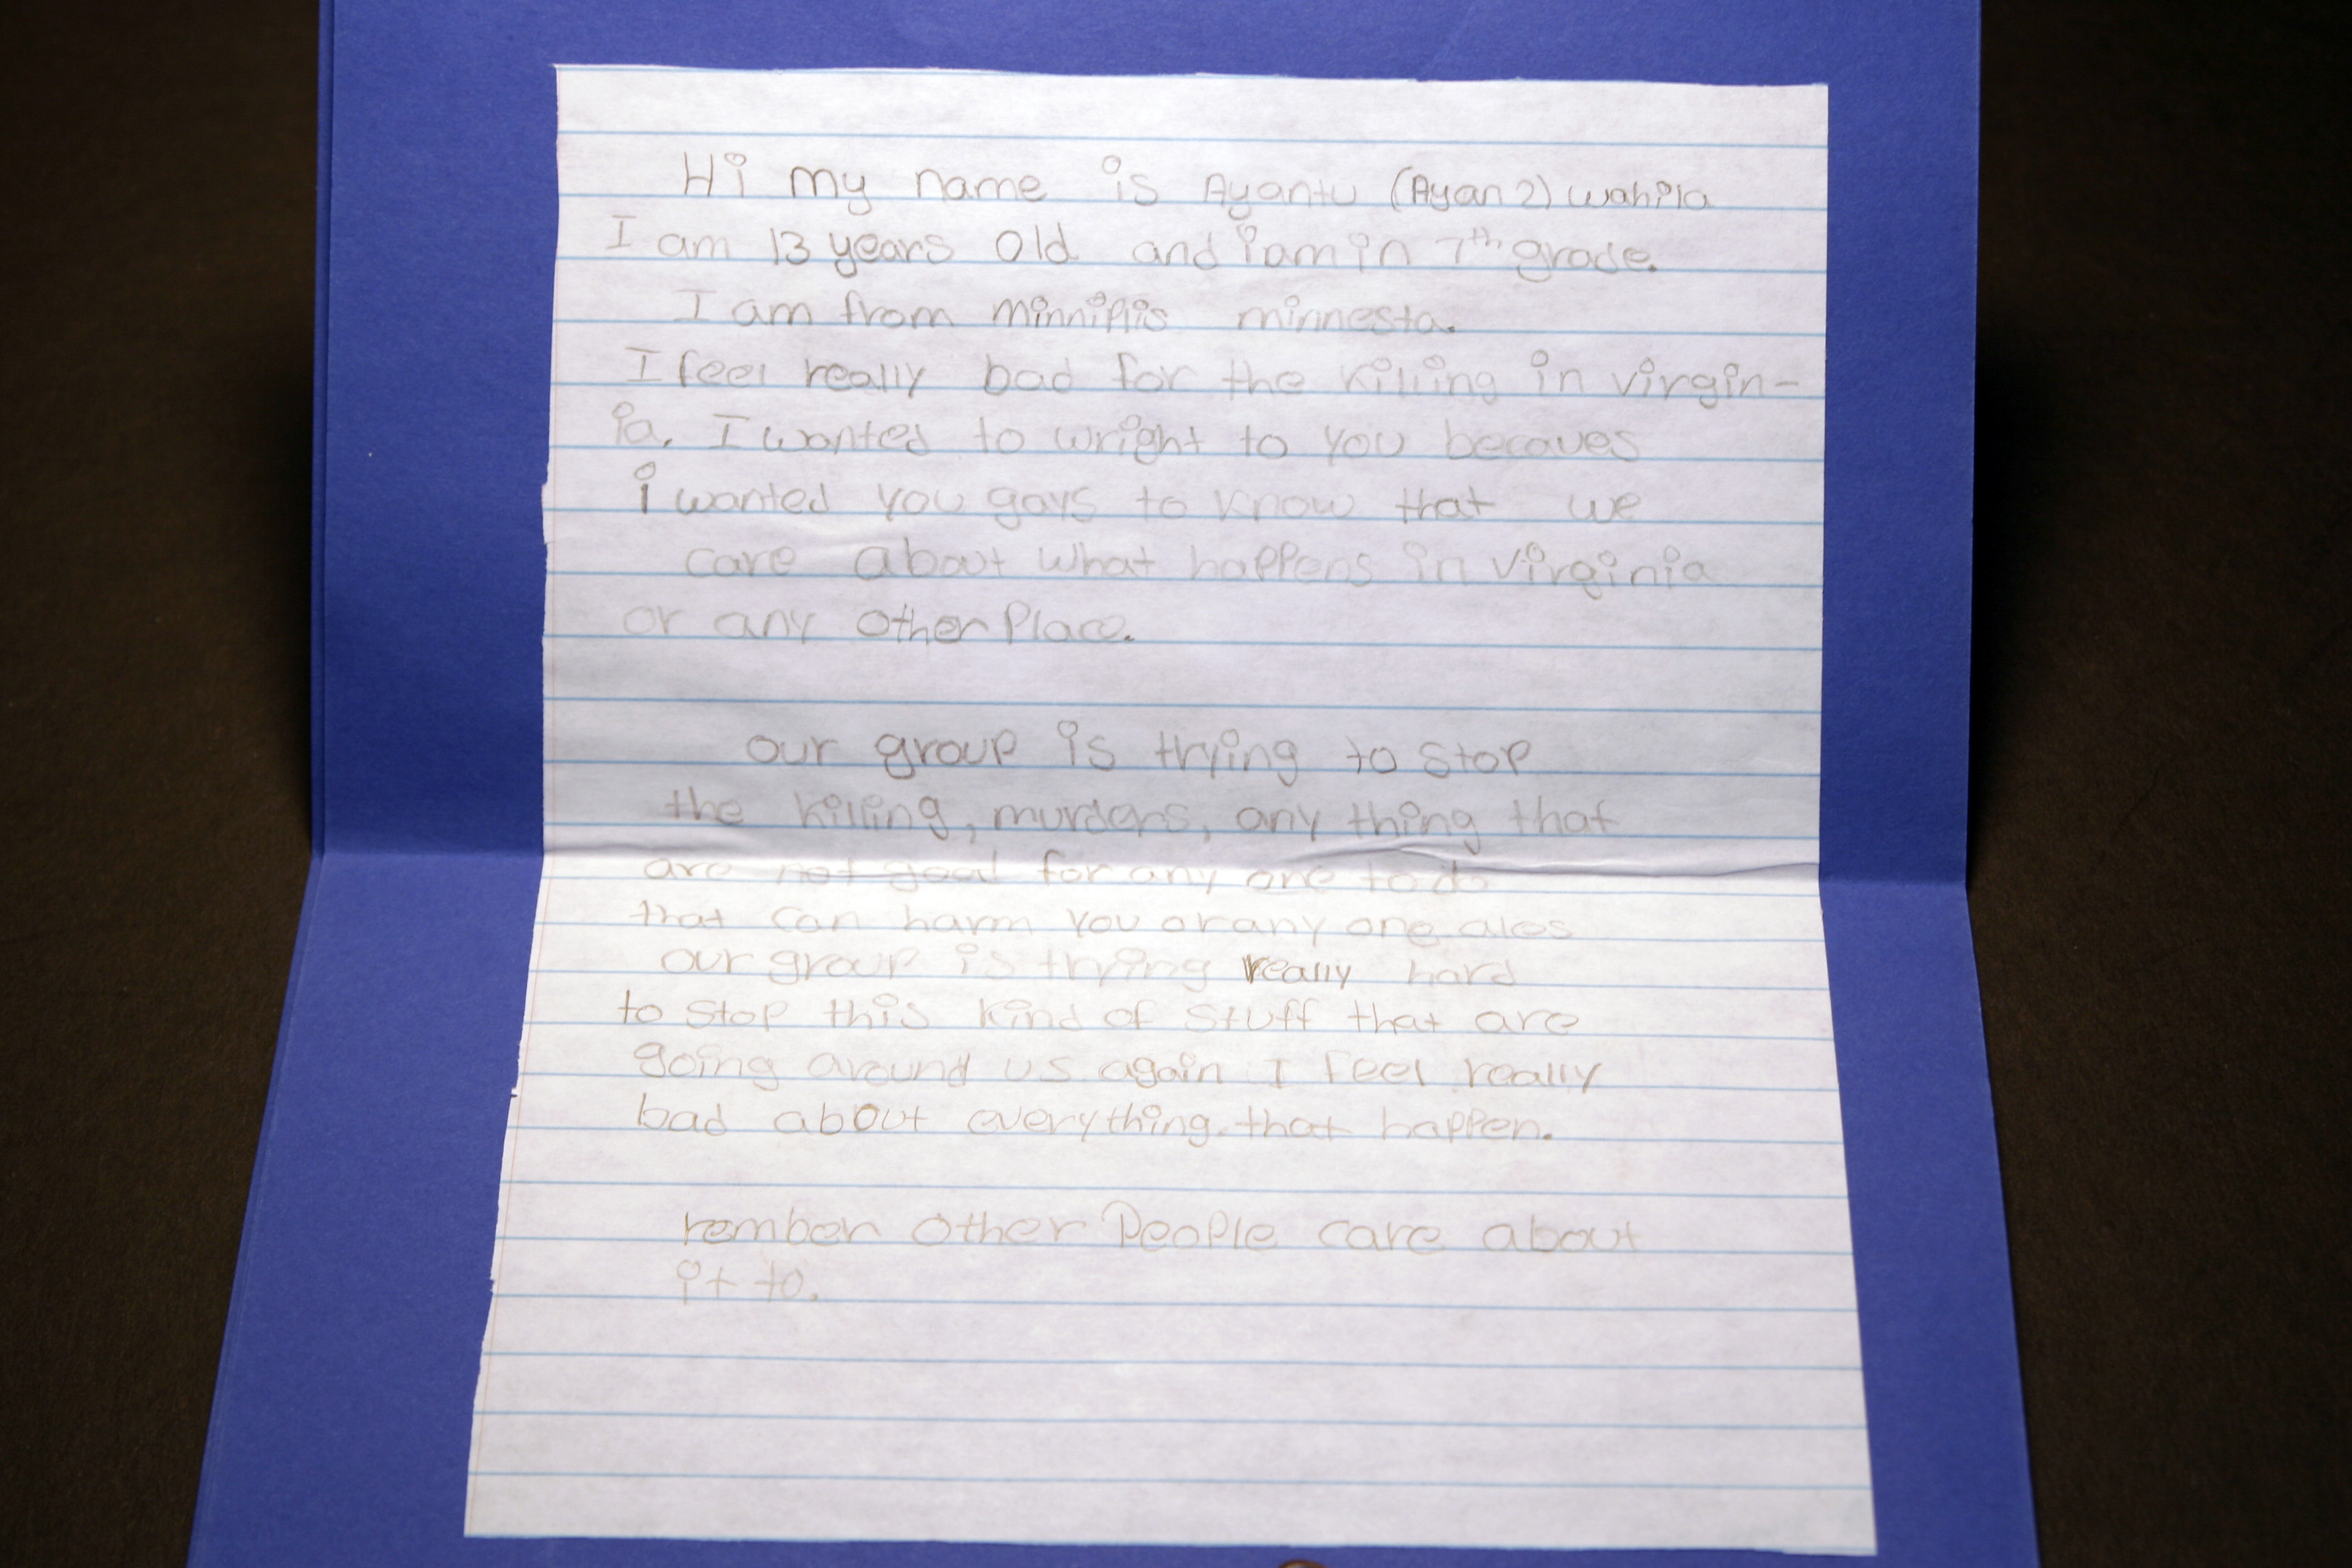 Hi my name is Ayantu (Ayan 2) wahila
I am 13 years old and i am in 7th grade.
I am from minniplis minnesta.
I feel really bad for the killing in virgin-
ia. I wanted to wright to you becaues
i wanted you gays to know that we
care about what happens in virginia
or any other Place.
our group is trying to stop
the killing, murders, any thing that
are not good for any one to do
that can harm you or any one ales
our group is trying really hard
to stop this kind of stuff that are
going around us again I feel really
bad about everything that happen.
rember other People care about
it to.